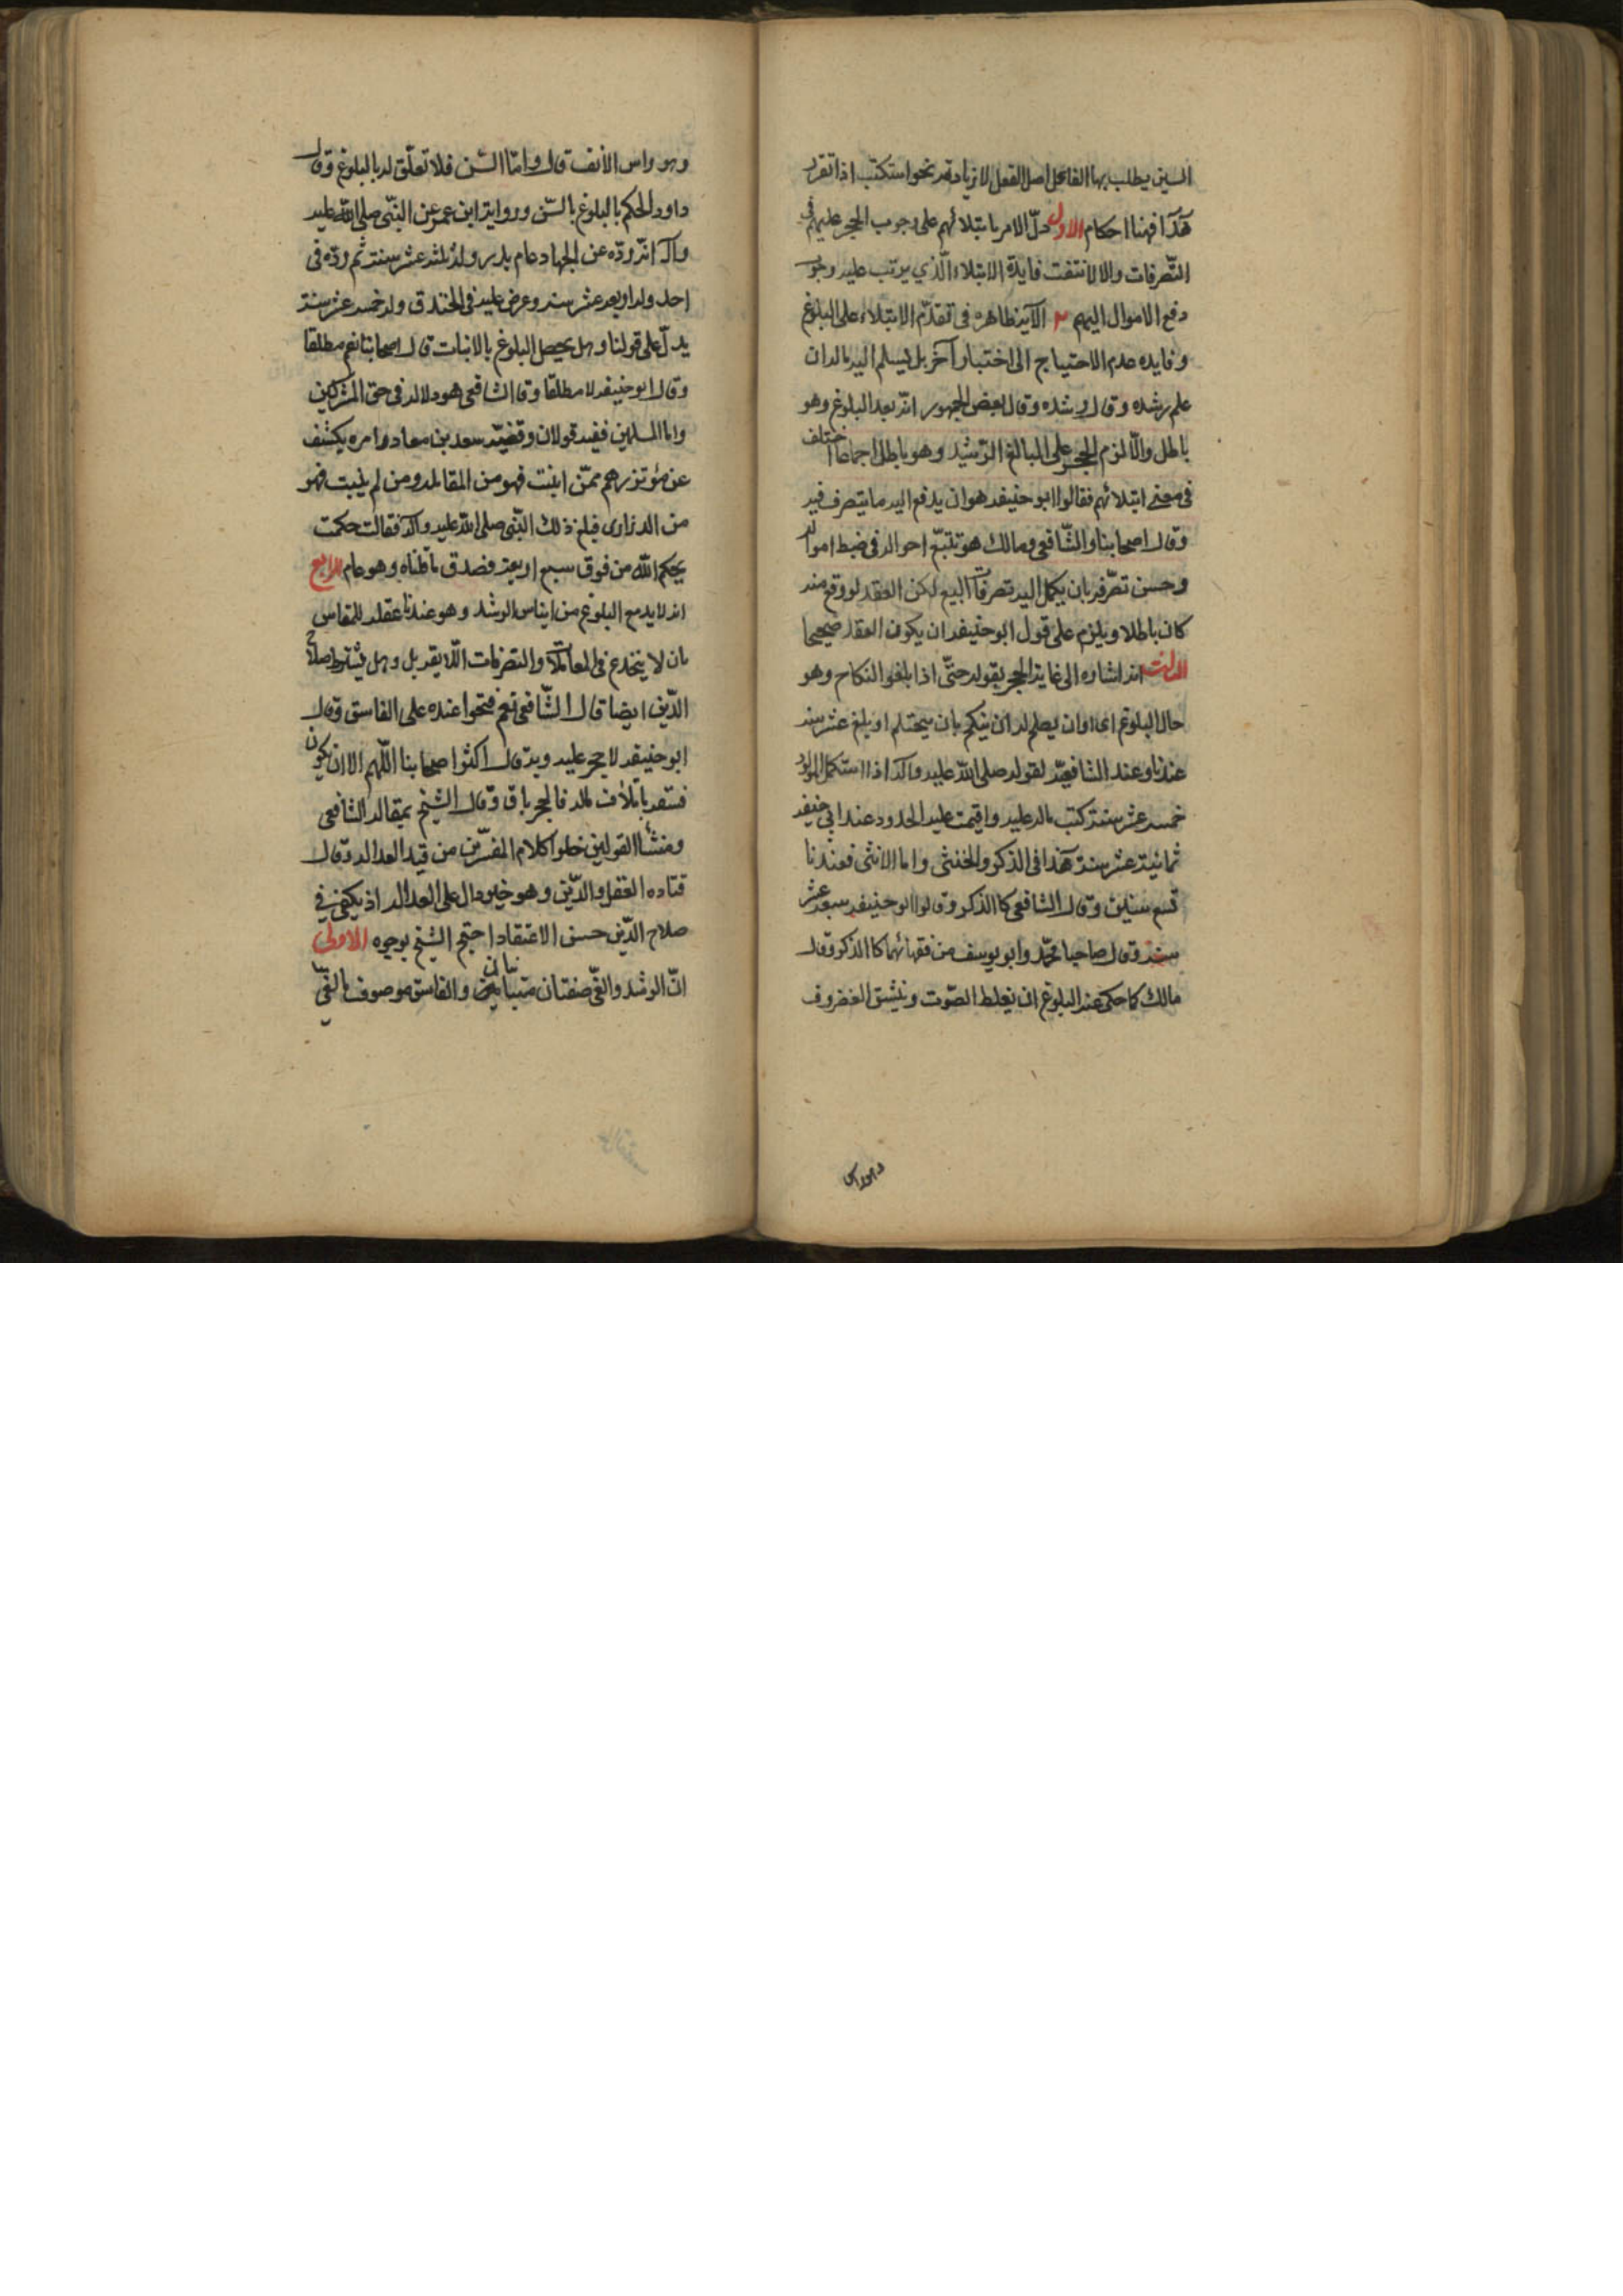 السين يطلب بها الفاعل اصل الفعل لا زيادته نحو استكتب اذا تقرر
هذا فهنا احكام الاول دلّ الامر بابتلائهم على وجوب الحجر عليهم فى
التّصرفات والا لانتفت فايدة الابتلاء الّذي يرتب عليه وجوب
دفع الاموال اليهم ٢ الآية ظاهره فى تقدّم الابتلاء على البلوغ
و فايده عدم الاحتياج الى اختبار آخر بل ليسلم اليه ماله ان
علم رشده وقال رشده وقال بعض الجمهور انّه بعد البلوغ وهو
باطل والّا لزم الحجر على البالغ الرّشيد وهو باطل اجماعا اختلف
فى معنى ابتلائهم فقالوا ابو حنيفه هو ان يدفع اليه ما يتصرف فيه
وقال اصحابنا والشّافعى ومالك هو تتبّع احواله فى ضبط امواله
وحسن تصّرفه بان يكمل اليه تصرفات البيع لكن العقد لو وقع منه
كان باطلا ويلزم على قول ابو حنيفه ان يكون العقد صحيحا
الثالث انه اشاره الى غاية الحجر بقوله حتّى اذا بلغوا النكاح وهو
حال البلوغ اى اوان يصلح له ان ينكح بان يحتلم او يبلغ عشر سنه
عندنا وعند الشافعيّه لقوله صلى الله عليه واله اذا استكمل المولود
خمسه عشر سنة كتب ماله عليه واقيمت عليه الحدود عند ابى حنيفه
ثمانية عشر سنة هذا فى الذكر والخنثى واما الانثى فعندنا
تسع سنين وقال الشافعى كالذكر وقالوا ابو حنيفه سبعه عشر
سنه وقال صاحبا محمّد وابو يوسف من فقهائهما كالذكر وقال
مالك كما حكى عنه البلوغ ان يغلظ الصّوت وينشق الغضروف
وهو راس
وهو راس الأنف قال وامّا السّن فلا تعلّق له بالبلوغ وقال
داود الحكم بالبلوغ بالسّن ورواية ابن عمر عن النّبى صلى الله عليه
واله انّه ردّه عن الجهاد عام بدر وله ثلثه عشر سنة ثم ردّه فى
احد وله اربعه عشر سنه وعرض عليه فى الخندق وله خمسه عشر سنة
يدلّ على قولنا وهل يحصل البلوغ بالانبات قال اصحابنا نعم مطلقا
وقال ابو حنيفه لا مطلقا وقال الشافعى هو دلاله فى حق المشركين
واما المسلمين ففيه قولان وقضيّه سعد بن معاد وامره يكشف
عن مؤتزرهم ممّن انبت فهو من المقاتله ومن لم ينبت فهو
من الذرارى فبلغ ذلك النّبى صلى الله عليه واله فقالت حكمت
بحكم الله من فوق سبع اربعة فصدق ما قلناه وهو عام الرابع
انه لابد مع البلوغ من ايناس الرشد وهو عندنا عقله للمقاس
بان لا ينخدع فى المعاملات والتصرفات اللايقه بل وهل يشترط صلاح
الدّين ايضا قال الشّافعى نعم فتحوا عنده على الفاسق وقال
ابو حنيفه لا حجر عليه وبه قال اكثر اصحابنا اللّهم الا ان يكون
فسقه باتلاف ماله فالحجر باق وقال الشيخ بمقاله الشافعى
ومنشأ القولين خلوا كلام المفسّرين من قيد العداله وقال
قتاده العقل والدّين وهو خير دال على العداله اذ يكفى فى
صلاح الدّين حسن الاعتقاد احتج الشيخ بوجوه الاولى
انّ الرشد والغّى صفتان متباينتان والفاسق موصوف بالغّى